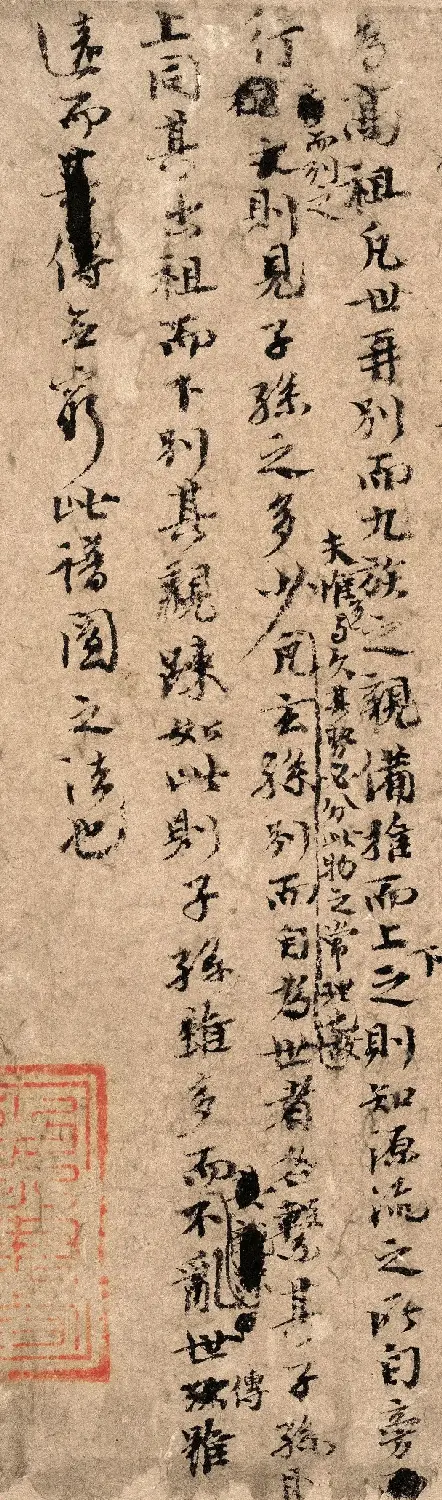 為高祖凡世再別而九族之親備推而上之則知源流之所自旁
下
而列之
夫惟多与久其勢必分此物之常理
行則見子孫之多少凡玄孫別而自為世者各繫其子孫則
上同其出祖而下別其親踈如此則子孫雖多而不亂世雖
傳
遠而傳无窮此譜圖之法也